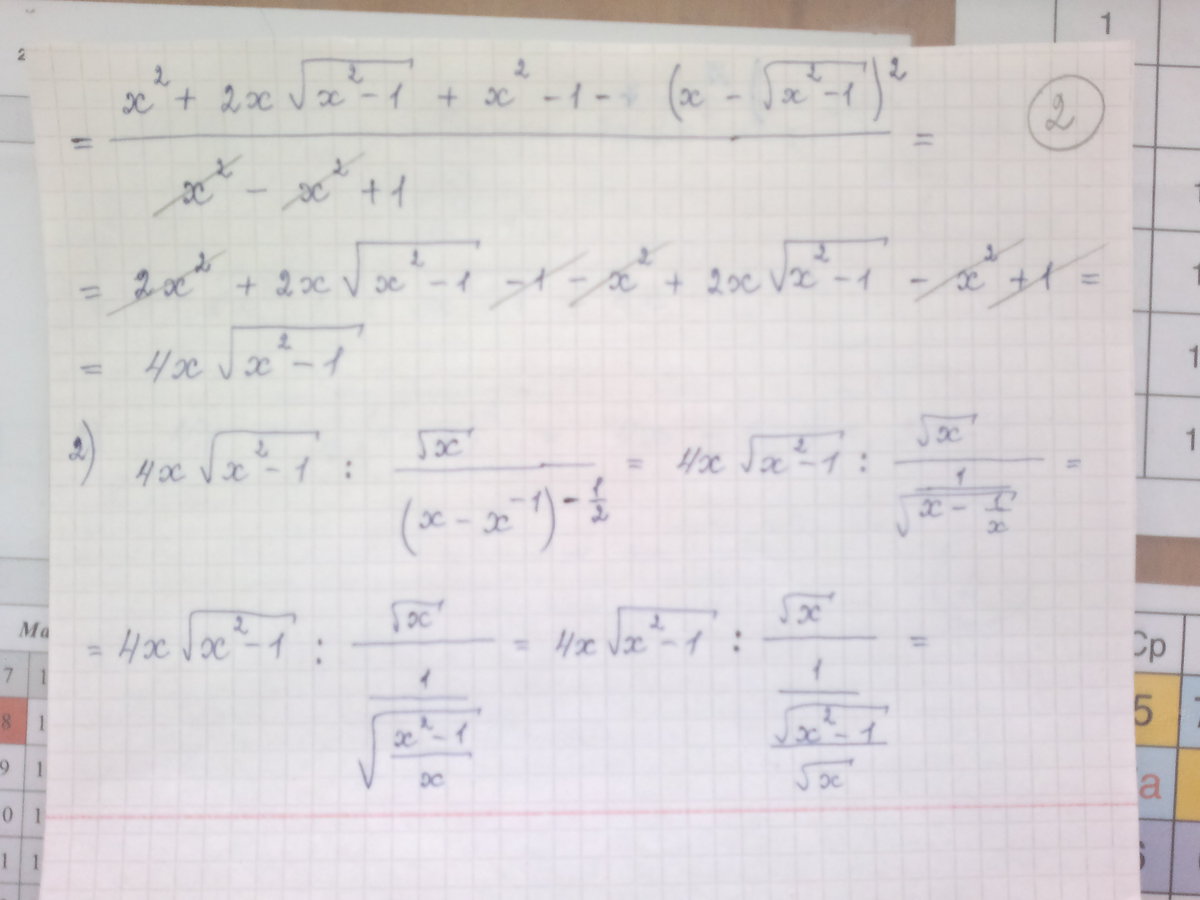 2
1
= (x² + 2x √(x² - 1) + x² - 1 - (x - √(x² - 1))²) / (x² - x² + 1) =
2
= 2x² + 2x √(x² - 1) - 1 - x² + 2x √(x² - 1) - x² + 1 =
= 4x √(x² - 1)
2) 4x √(x² - 1) : √x / (x - x⁻¹)^(-1/2) = 4x √(x² - 1) : √x / (1 / √(x - 1/x)) =
= 4x √(x² - 1) : √x / (1 / √((x² - 1)/x)) = 4x √(x² - 1) : √x / (1 / (√(x² - 1) / √x)) =
1
1
1
1
Ma
7 1
8 1
9 1
0 1
1 1
Ср
5
а
6